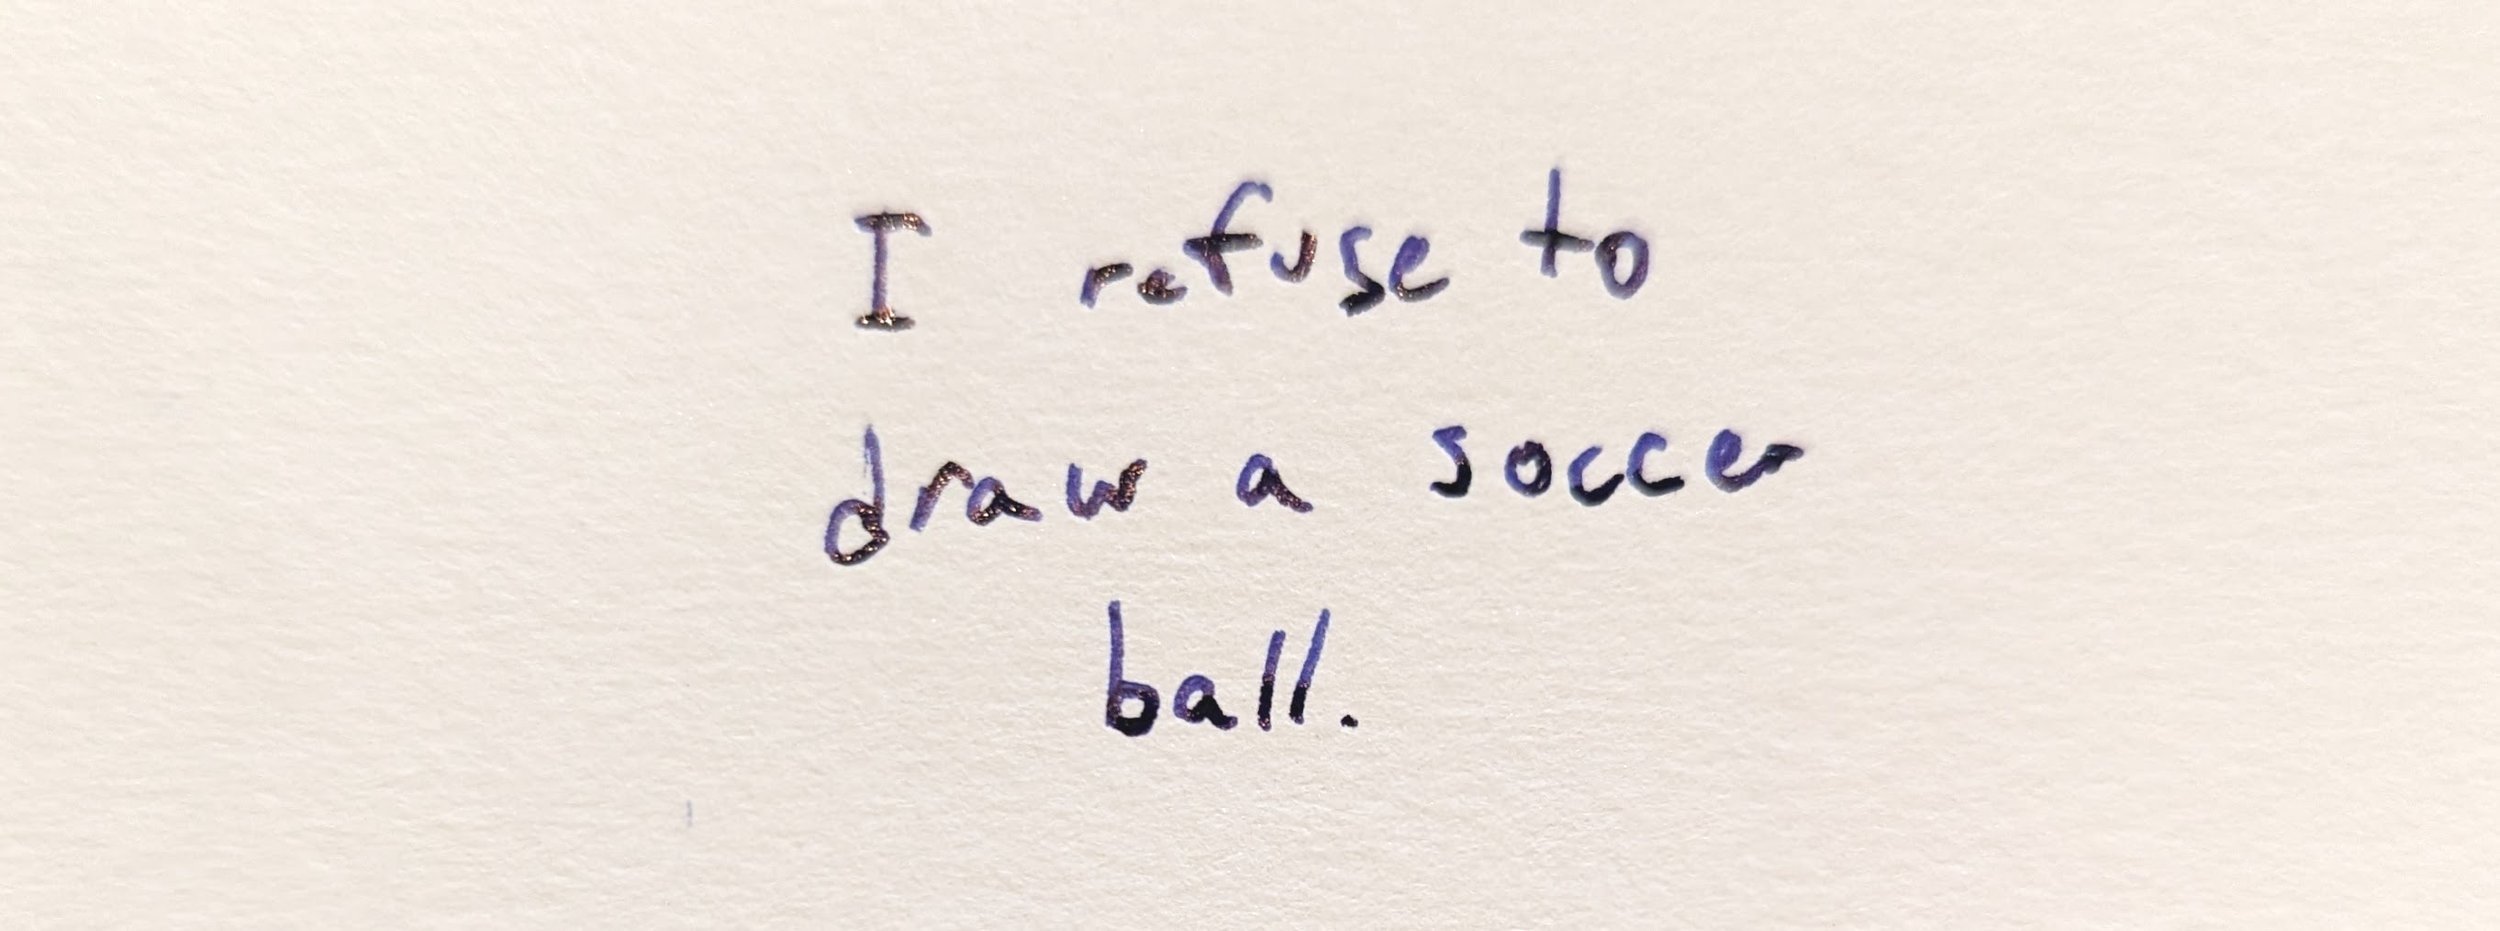 I refuse to
draw a soccer
ball.